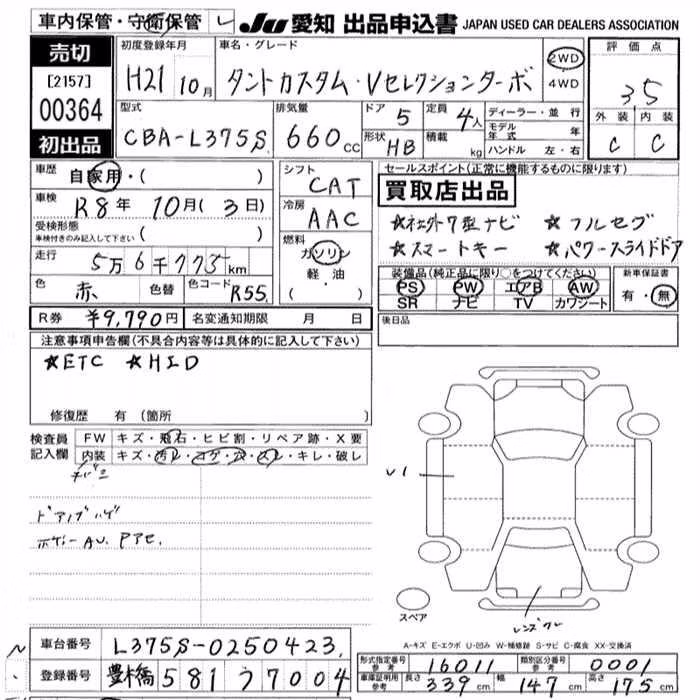 車内保管・守衛保管 レ JU 愛知 出品申込書 JAPAN USED CAR DEALERS ASSOCIATION
売切
[2157]
00364
初出品
初度登録年月 車名・グレード 評価点
H21 10月 タントカスタム・Vセレクションターボ 2WD
4WD
3.5
型式 排気量 ドア 定員 ディーラー・並行 外装 内装
CBA-L375S 660cc 5 4人 モデル年式 年
形状 HB 積載 kg ハンドル 左・右 C C
車歴 自家用・( )
シフト CAT
セールスポイント(正常に機能するものに限ります)
買取店出品
車検 R8年 10月(3日)
冷房 AAC
☆社外7型ナビ ☆フルセグ
受検形態 車検付きのみ記入して下さい ( )
燃料 ガソリン
軽・油
( ・ )
☆スマートキー ☆パワースライドドア
走行 5万6千775km
装備品(純正品に限り○をつけてください) 新車保証書
色 赤 色替 色コード R55
PS PW エアB AW 有・無
SR ナビ TV カワシート
R券 ¥9,790円 名変通知期限 月 日
後日品
注意事項申告欄(不具合内容等は具体的に記入して下さい)
☆ETC ☆HID
修復歴 有 (箇所 )
検査員 FW キズ・飛石・ヒビ割・リペア跡・X要
記入欄 内装 キズ・汚れ・コゲ・穴・スレ・キレ・破レ
ドアノブハゲ
ボデーAU、Pアセ、
U1
スペア
レンズワレ
A-キズ E-エクボ U-凹み W-補修跡 S-サビ C-腐食 XX-交換済
車台番号 L375S-0250423
登録番号 豊橋 581 う 7004
型式指定番号 参考 16011 類別区分番号 参考 0001
車庫証明用 参考 長さ 339cm 幅 147cm 高さ 175cm